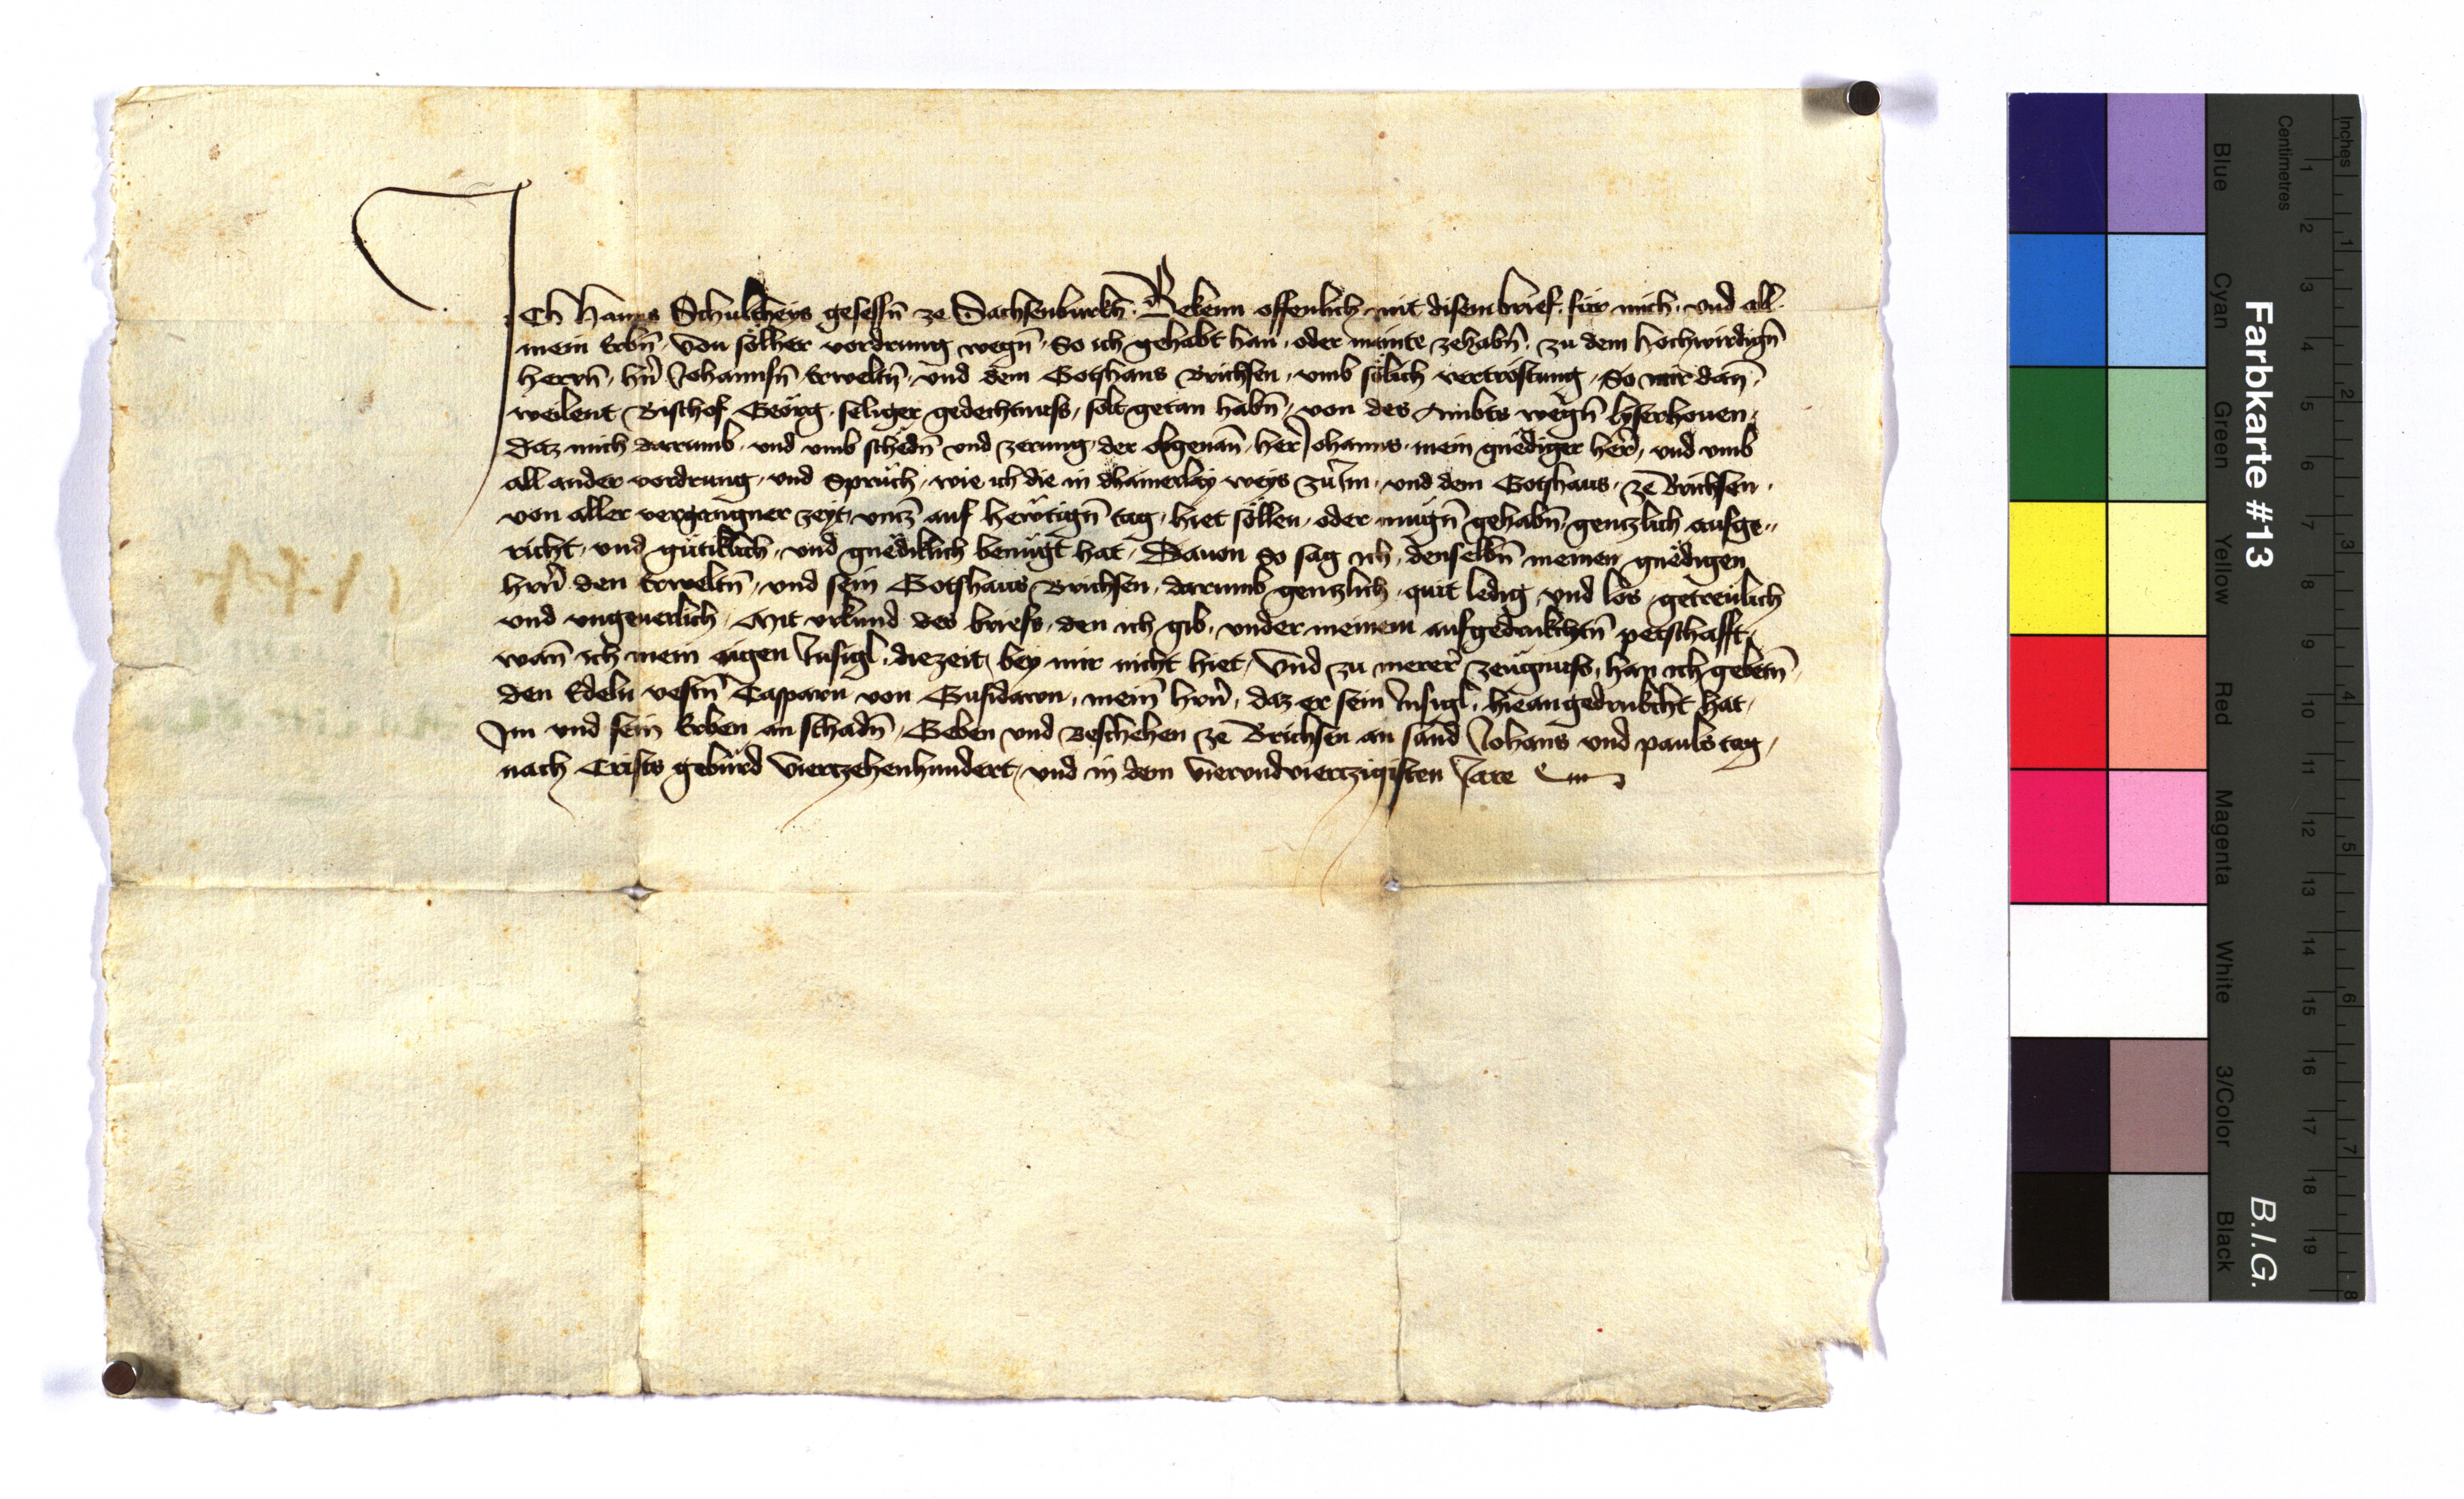 Ich Hanns Schultheys gesessn̄ ze Sachsenburkh. Bekenn offenlich mit disem brief. für mich. vnd all.
mein Erbn̄. Von sölher vordrung wegn̄. So ich gehabt han. oder mainte zehabn̄. zu dem hochwirdign̄
herrn̄. hrn̄ Johannsn̄ Erweltn̄. vnd dem Gotshaus Brichsen. vmb sölich vertröstung. So mir dan̄.
weilent Bischof Geörg. seliger gedechtnuss, solt getan habn̄. von des Ambts wegn̄ lyserhouen.
Daz mich darumb. vnd vmb schedn̄ vnd zerung. der obgenan̄. her Johanns. mein gnediger her. vnd vmb
all ander vordrung. vnd Sprüch. wie ich die in dhainerlay weys zu Im. vnd dem Gotshaus. ze Brichsen.
von aller vergangner zeyt, vntz auf hewtign̄ tag. hiet söllen. oder mugn̄ gehabn̄. gentzlich ausge„
richt. vnd gütiklich. vnd gnediklich benügt hat. Dauon So sag ich. denselbn̄ meinen gnedigen
hrn̄ den Erweltn̄. vnd sein Gotshaus Brichsen. darumb gentzlich. quit ledig. vnd los. getreulich
vnd vngeuerlich. Mit vrkund des briefs. den ich gib. vnder meinem aufgedrukchtn̄ petschafft.
wan̄ ich mein aigen Insigl. diezeit. bey mir nicht hiet. Vnd zu merer zeugnuss. han ich gebetn̄.
den Edeln vestn̄ Casparn von Gufidawn. mein̄ hrn̄. daz er sein Insigl. hieangedrukcht hat.
Im vnd sein Erben an schadn̄. Geben vnd Beschehen ze Brichsen an sand Johans vnd pauls tag.
nach Crists gebürd Viertzehenhundert. vnd in dem Vierundviertzigisten Jare
Farbkarte #13
B.I.G.
Inches
Centimetres
1 2 3 4 5 6 7 8 9 10 11 12 13 14 15 16 17 18 19
1 2 3 4 5 6 7 8
Blue
Cyan
Green
Yellow
Red
Magenta
White
3/Color
Black